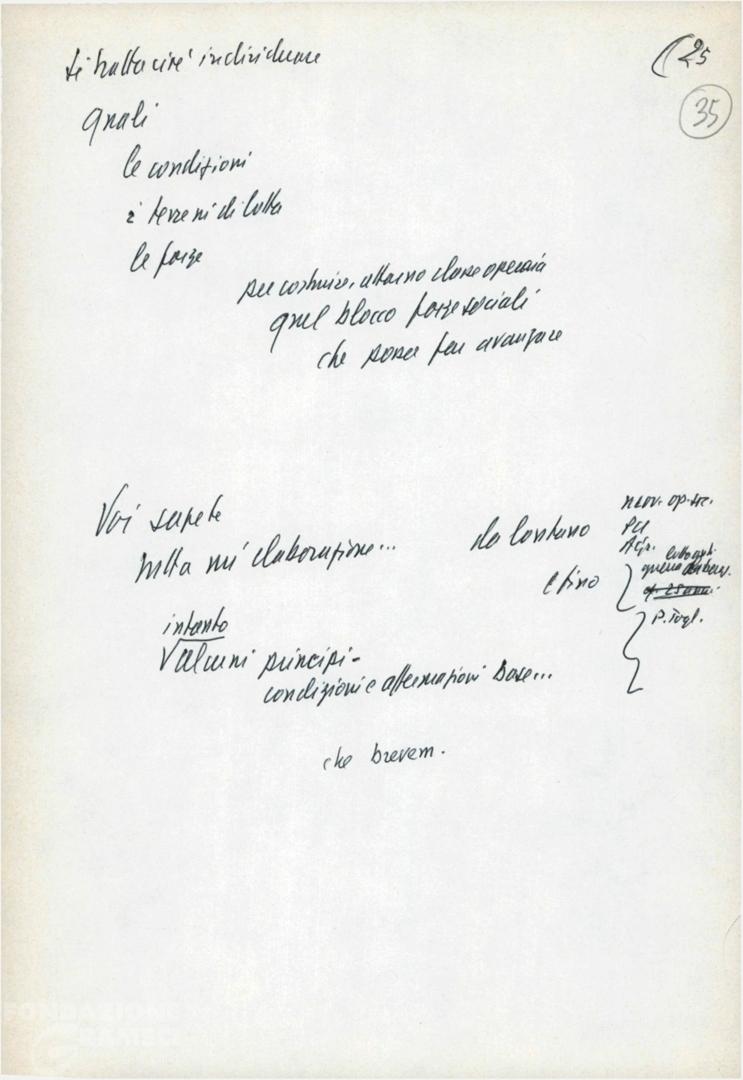 (25
35
si tratta cioè individuare
quali
le condizioni
i terreni di lotta
le forze
per costruire, attorno classe operaia
quel blocco forze sociali
che possa far avanzare
Voi sapete
tutta ns/ elaborazione... da lontano
e fino
mov. op.
PCI
25 anni
P. Togl.
intanto
√alcuni principi -
condizioni e affermazioni base...
che brevem.
FONDAZIONE
GRAMSCI